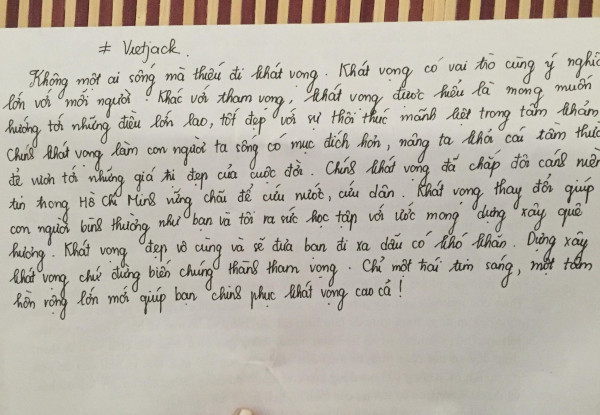 # Vietjack.
Không một ai sống mà thiếu đi khát vọng. Khát vọng có vai trò cùng ý nghĩa
lớn với mỗi người. Khác với tham vọng, khát vọng được hiểu là mong muốn
hướng tới những điều lớn lao, tốt đẹp với sự thôi thúc mãnh liệt trong tâm khảm
Chính khát vọng làm con người ta sống có mục đích hơn, nâng ta khỏi cái tầm thườ
để vươn tới những giá trị đẹp của cuộc đời. Chính khát vọng đã chắp đôi cánh niềm
tin trong Hồ Chí Minh vững chãi để cứu nước, cứu dân. Khát vọng thay đổi giúp
con người bình thường như bạn và tôi ra sức học tập với ước mong dựng xây quê
hương. Khát vọng đẹp vô cùng và sẽ đưa bạn đi xa dẫu có khó khăn. Dựng xây
khát vọng chứ đừng biến chúng thành tham vọng. Chỉ một trái tim sáng, một tâm
hồn rộng lớn mới giúp bạn chinh phục khát vọng cao cả!